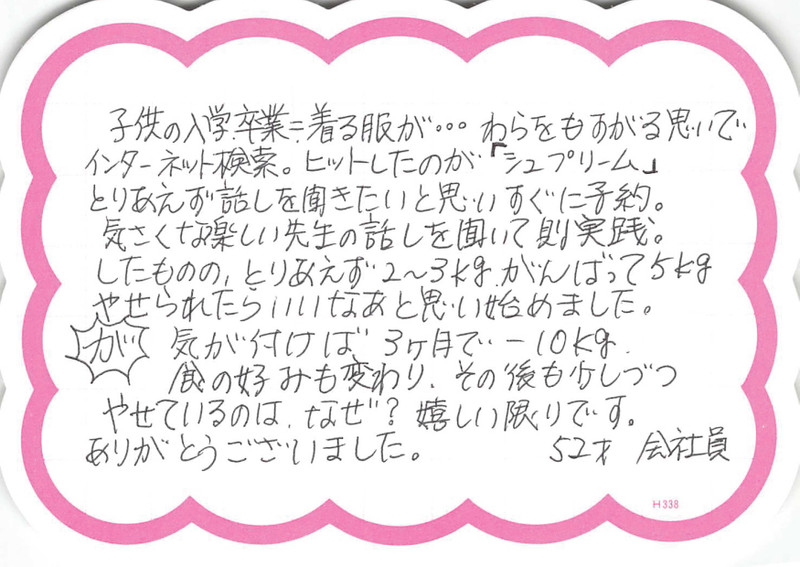 子供の入学卒業=着る服が… わらをもすがる思いで
インターネット検索。ヒットしたのが「シュプリーム」
とりあえず話しを聞きたいと思いすぐに予約。
気さくな楽しい先生の話しを聞いて則実践。
したものの、とりあえず2〜3kg がんばって5kg
やせられたらいいなあと思い始めました。
が 気が付けば 3ヶ月で −10kg.
食の好みも変わり、その後も少しづつ
やせているのは、なぜ?嬉しい限りです。
ありがとうございました。 52才 会社員
H338